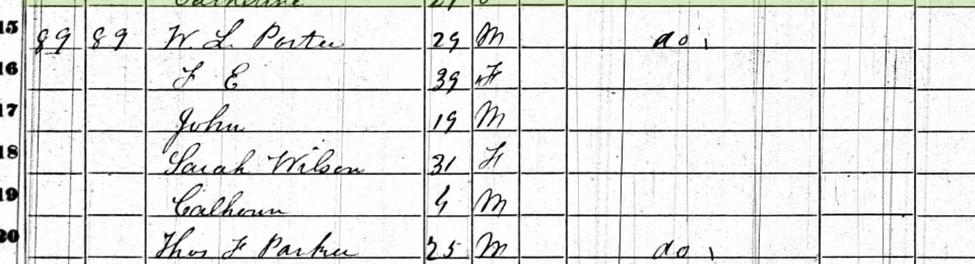 Catherine 21
15 89 89 W. L. Porter 29 M do
16 F E 39 F
17 John 19 M
18 Sarah Wilson 31 F
19 Calhoun 4 M
20 Thos F Parker 25 M do